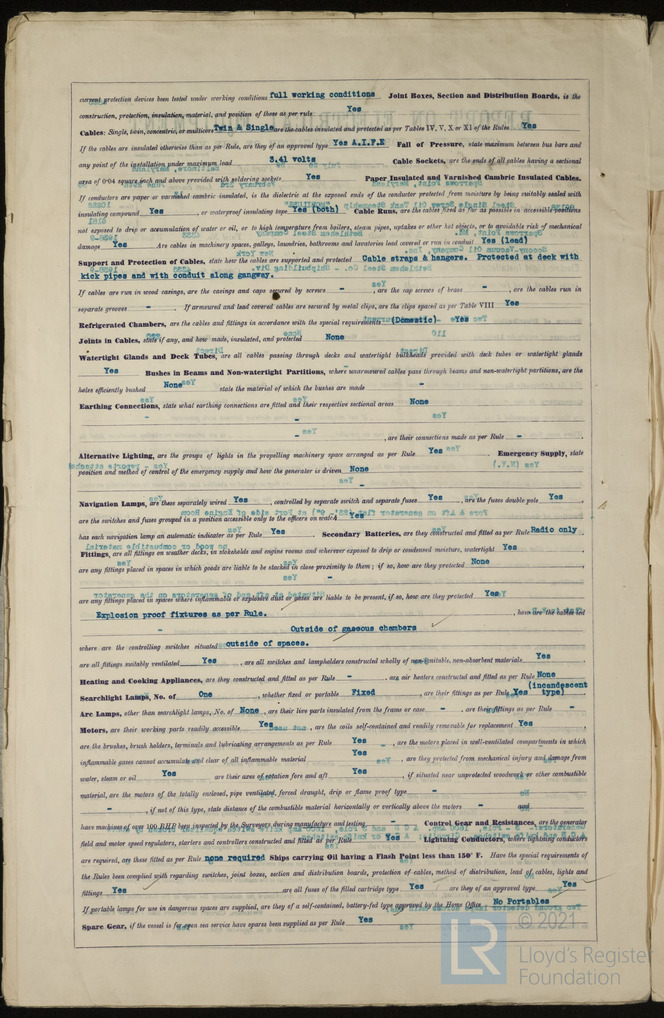 current protection devices been tested under working conditions full working conditions Joint Boxes, Section and Distribution Boards, is the
construction, protection, insulation, material, and position of these as per rule Yes
Cables: Single, twin, concentric, or multicore Twin & Single are the cables insulated and protected as per Tables IV, V, X or XI of the Rules Yes
If the cables are insulated otherwise than as per Rule, are they of an approved type Yes A.I.E.E Fall of Pressure, state maximum between bus bars and
any point of the installation under maximum load 3.41 volts Cable Sockets, are the ends of all cables having a sectional
area of 0·04 square inch and above provided with soldering sockets Yes Paper Insulated and Varnished Cambric Insulated Cables.
If conductors are paper or varnished cambric insulated, is the dielectric at the exposed ends of the conductor protected from moisture by being suitably sealed with
insulating compound Yes , or waterproof insulating tape Yes (both) Cable Runs, are the cables fixed as far as possible in accessible positions
not exposed to drip or accumulation of water or oil, or to high temperature from boilers, steam pipes, uptakes or other hot objects, or to avoidable risk of mechanical
damage Yes Are cables in machinery spaces, galleys, laundries, bathrooms and lavatories lead covered or run in conduit Yes (lead)
Support and Protection of Cables, state how the cables are supported and protected Cable straps & hangers. Protected at deck with
kick pipes and with conduit along gangway.
If cables are run in wood casings, are the casings and caps secured by screws - , are the cap screws of brass - , are the cables run in
separate grooves - If armoured and lead covered cables are secured by metal clips, are the clips spaced as per Table VIII Yes
Refrigerated Chambers, are the cables and fittings in accordance with the special requirements (Domestic) Yes
Joints in Cables, state if any, and how made, insulated, and protected None
Watertight Glands and Deck Tubes, are all cables passing through decks and watertight bulkheads provided with deck tubes or watertight glands
Yes Bushes in Beams and Non-watertight Partitions, where unarmoured cables pass through beams and non-watertight partitions, are the
holes efficiently bushed None state the material of which the bushes are made -
Earthing Connections, state what earthing connections are fitted and their respective sectional areas None
-
, are their connections made as per Rule -
Alternative Lighting, are the groups of lights in the propelling machinery space arranged as per Rule Yes Emergency Supply, state
position and method of control of the emergency supply and how the generator is driven None
-
Navigation Lamps, are these separately wired Yes , controlled by separate switch and separate fuses Yes , are the fuses double pole Yes ,
are the switches and fuses grouped in a position accessible only to the officers on watch Yes
has each navigation lamp an automatic indicator as per Rule Yes Secondary Batteries, are they constructed and fitted as per Rule Radio only
Fittings, are all fittings on weather decks, in stokeholds and engine rooms and wherever exposed to drip or condensed moisture, watertight Yes
are any fittings placed in spaces in which goods are liable to be stacked in close proximity to them; if so, how are they protected None
-
are any fittings placed in spaces where inflammable or explosive dust or gases are liable to be present, if so, how are they protected Yes
Explosion proof fixtures as per Rule. , how are the cables led
- Outside of gaseous chambers
where are the controlling switches situated outside of spaces.
are all fittings suitably ventilated Yes , are all switches and lampholders constructed wholly of non-ignitable, non-absorbent materials Yes
Heating and Cooking Appliances, are they constructed and fitted as per Rule - , are air heaters constructed and fitted as per Rule None
Searchlight Lamps, No. of One , whether fixed or portable Fixed , are their fittings as per Rule Yes (incandescent type)
Arc Lamps, other than searchlight lamps, No. of None , are their live parts insulated from the frame or case - , are their fittings as per Rule -
Motors, are their working parts readily accessible Yes , are the coils self-contained and readily removable for replacement Yes ,
are the brushes, brush holders, terminals and lubricating arrangements as per Rule Yes , are the motors placed in well-ventilated compartments in which
inflammable gases cannot accumulate and clear of all inflammable material Yes , are they protected from mechanical injury and damage from
water, steam or oil Yes are their axes of rotation fore and aft Yes , if situated near unprotected woodwork or other combustible
material, are the motors of the totally enclosed, pipe ventilated, forced draught, drip or flame proof type -
- , if not of this type, state distance of the combustible material horizontally or vertically above the motors - and -
have machines of over 100 BHP been inspected by the Surveyors during manufacture and testing - Control Gear and Resistances, are the generator
field and motor speed regulators, starters and controllers constructed and fitted as per Rule Yes Lightning Conductors, where lightning conductors
are required, are these fitted as per Rule none required Ships carrying Oil having a Flash Point less than 150° F. Have the special requirements of
the Rules been complied with regarding switches, joint boxes, section and distribution boards, protection of cables, method of distribution, lead of cables, lights and
fittings Yes are all fuses of the filled cartridge type Yes are they of an approved type Yes
If portable lamps for use in dangerous spaces are supplied, are they of a self-contained, battery-fed type approved by the Home Office No Portables
Spare Gear, if the vessel is for open sea service have spares been supplied as per Rule Yes
© 2021
LR
Lloyd's Register
Foundation